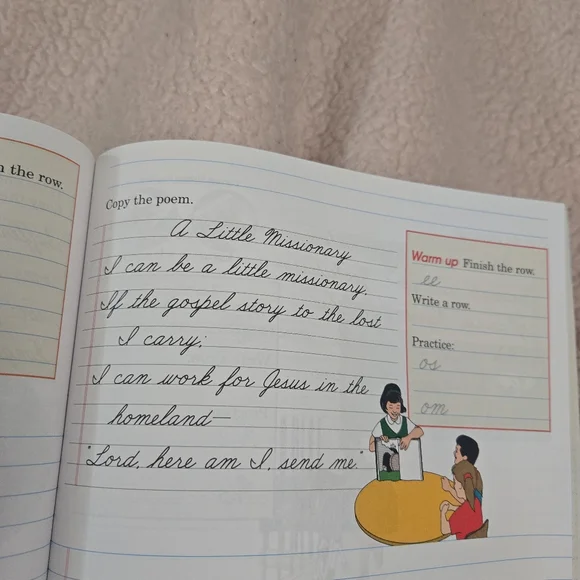 the row.
Copy the poem.
A Little Missionary
I can be a little missionary,
If the gospel story to the lost
I carry;
I can work for Jesus in the
homeland—
"Lord, here am I, send me."
Warm up Finish the row.
ee
Write a row.
Practice:
os
om